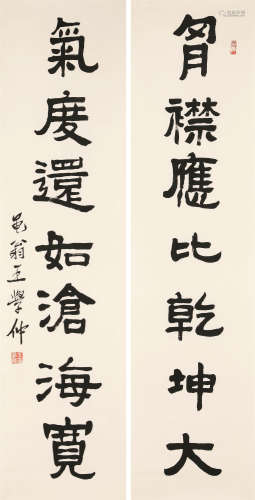 胷襟應比乾坤大
氣度還如滄海寬
黾翁王學仲